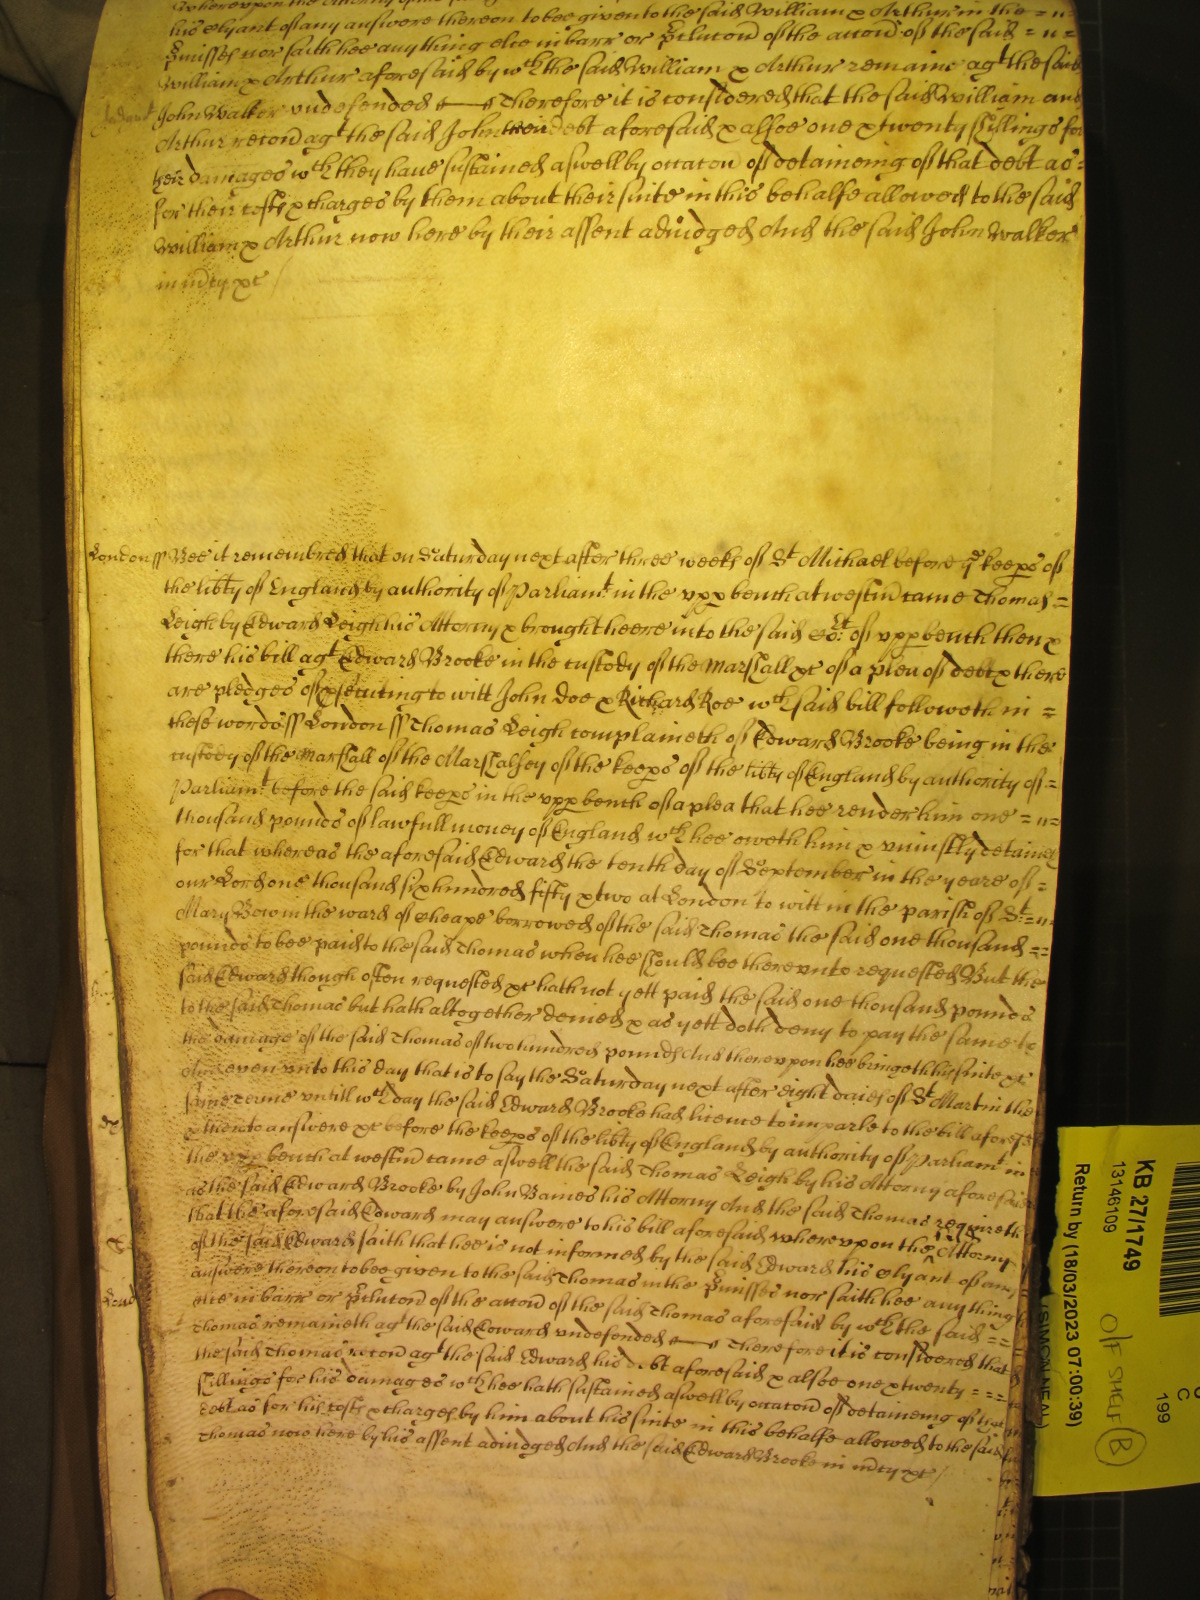 his clyant of any answere thereon to bee given to the said William & Arthur in the = n =
Pmisses nor saith hee any thing else in barr or Pclucon of the accon of the said = n =
William & Arthur aforesaid by wch the said William & Arthur remaine agt the said
Judgmt John Walker undefended Therefore it is considered that the said William and
Arthur recover agt the said John their debt aforesaid & alsoe one & twenty shillings for
their damages wch they have susteined aswell by occacon of deteineing of that debt as =
for their costs & charges by them about their suite in this behalfe allowed to the said
William & Arthur now here by their assent adiudged And the said John Walker
in mcy &c
London ss Bee it remembred that on Saturday next after three weeks of St Michael before ye keeps of
the libty of England by authority of Parliamt in the upp bench at westm came Thomas =
Leigh by Edward Leigh his Attorny & brought heere into the said Cort of upp bench then &
there his bill agt Edward Brooke in the custody of the Marshall &c of a plea of debt & there
are pledges of psecuting to witt John Doe & Richard Roe wch said bill followeth in =
these words ss London ss Thomas Leigh complaineth of Edward Brooke being in the
custody of the Marshall of the Marshalsey of the keeps of the libty of England by authority of =
Parliamt before the said keeps in the upp bench of a plea that hee render him one = n =
thousand pounds of lawfull money of England wch hee oweth him & uniustly deteines
for that whereas the aforesaid Edward the tenth day of September in the yeare of =
our Lord one thousand six hundred fifty & two at London to witt in the parish of St = n
Mary Bow in the ward of Cheape borrowed of the said Thomas the said one thousand ==
pounds to bee paid to the said Thomas when hee should bee thereunto requested But the
said Edward though often requested &c hath not yett paid the said one thousand pounds
to the said Thomas but hath altogether denied & as yett doth deny to pay the same to
the damage of the said Thomas of two hundred pounds And thereupon hee bringeth his suite &c
And even unto this day that is to say the Saturday next after eight daies of St Martin the
same terme untill wch day the said Edward Brooke had licence to imparle to the bill aforesd
& then to answere &c before the keeps of the libty of England by authority of Parliamt in
the upp bench at westm came aswell the said Thomas Leigh by his Attorny aforesaid
as the said Edward Brooke by John Baines his Attorny And the said Thomas requireth
that the aforesaid Edward may answere to his bill aforesaid whereupon the said Attorny
of the said Edward saith that hee is not informed by the said Edward his clyant of any
answere thereon to bee given to the said Thomas in the Pmisses nor saith hee any thing
else in barr or Pclucon of the accon of the said Thomas aforesaid by wch the said ==
Thomas remaineth agt the said Edward undefended Therefore it is considered that
the said Thomas recover agt the said Edward his debt aforesaid & alsoe one & twenty ===
shillings for his damages wch hee hath susteined aswell by occacon of deteineing of that
debt as for his costs & charges by him about his suite in this behalfe allowed to the said
Thomas now here by his assent adiudged And the said Edward Brooke in mcy &c
KB 27/1749
13146109
Return by (18/03/2023 07:00:39)
(SIMON NEAL)
O/F SHELF B
C
199